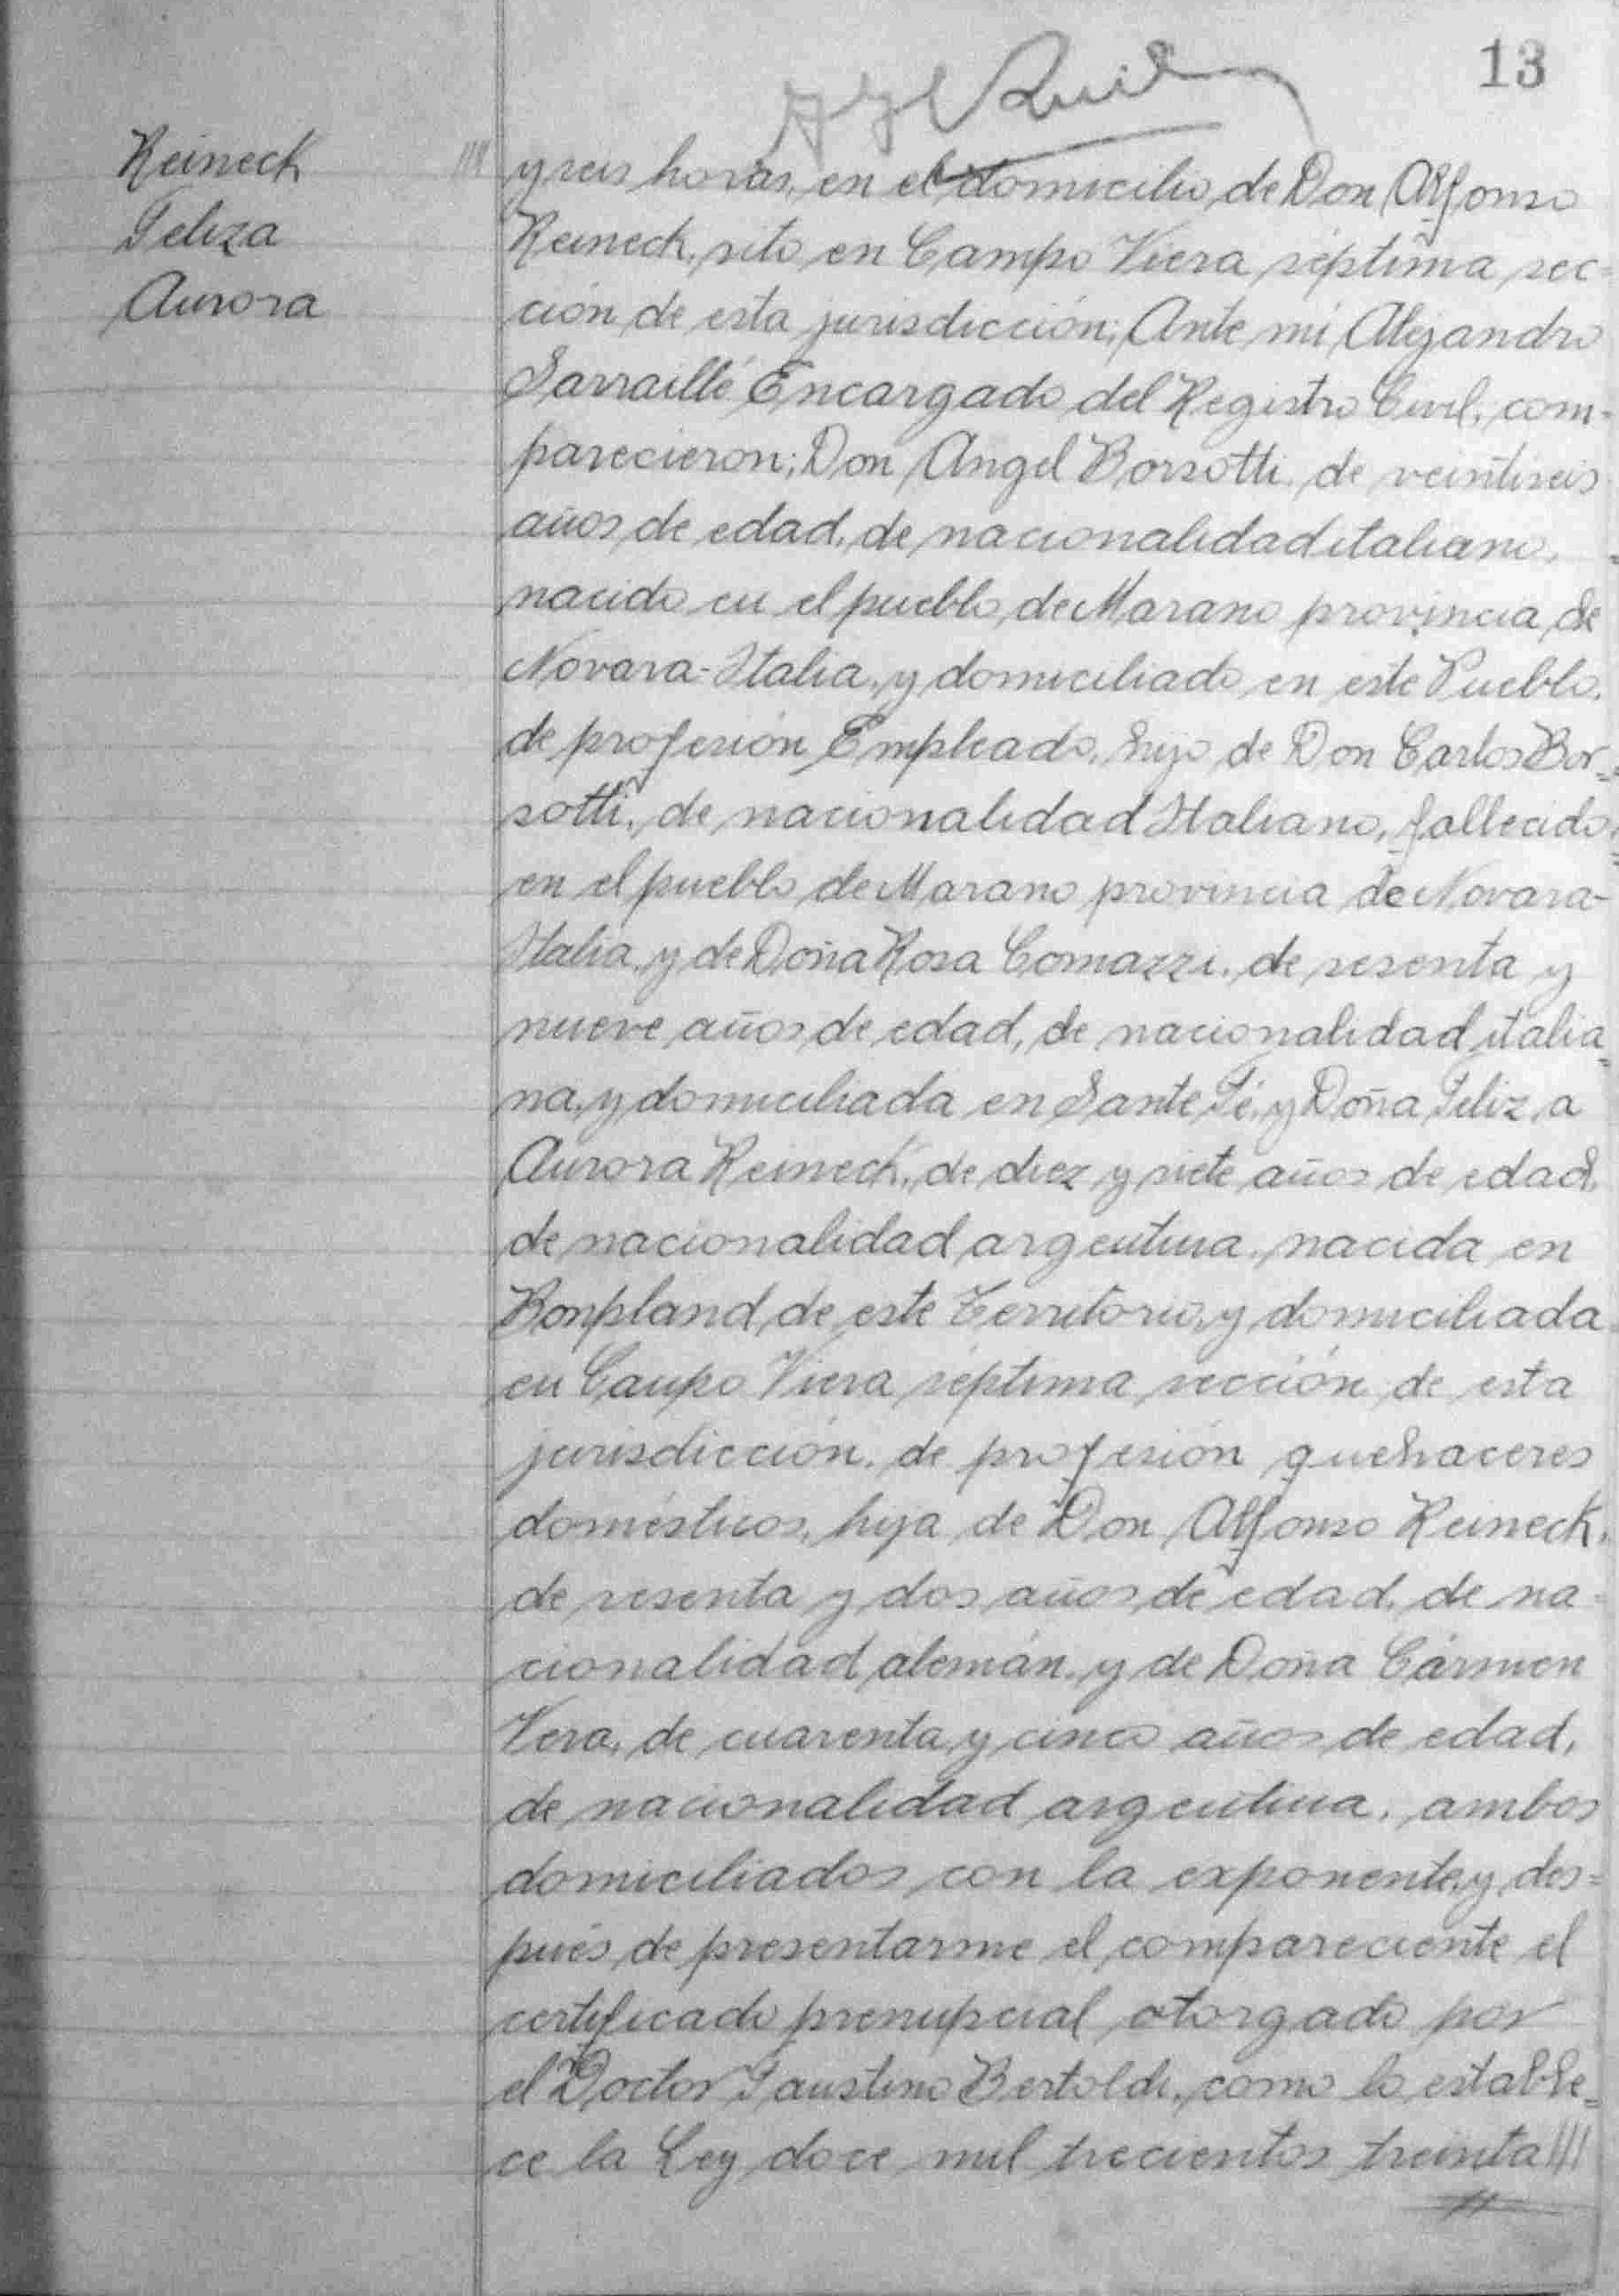 13
Reineck
Feliza
Aurora
y seis horas, en el domicilio de Don Alfonso
Reineck, sito en Campo Viera séptima sec=
ción de esta jurisdicción; Ante mi Alejandro
Sarraillé Encargado del Registro Civil, com-
parecieron; Don Angel Borsotti, de veintiseis
años de edad, de nacionalidad italiano,
nacido en el pueblo de Marano provincia de
Novara-Italia, y domiciliado en este Pueblo,
de profesión Empleado, hijo de Don Carlos Bor=
sotti, de nacionalidad Italiano, fallecido
en el pueblo de Marano provincia de Novara-
Italia, y de Doña Rosa Comazzi, de sesenta y
nueve años de edad, de nacionalidad italia=
na, y domiciliada en Sante Fé, y Doña Feliza
Aurora Reineck, de diez y siete años de edad,
de nacionalidad argentina, nacida en
Bonpland de este Territorio, y domiciliada
en Campo Viera séptima sección de esta
jurisdicción, de profesión quehaceres
domésticos, hija de Don Alfonso Reineck,
de sesenta y dos años de edad, de na=
cionalidad alemán, y de Doña Cármen
Vera, de cuarenta y cinco años de edad,
de nacionalidad argentina, ambos
domiciliados con la exponente, y des=
pués de presentarme el compareciente el
certificado prenupcial otorgado por
el Doctor Faustino Bertoldi, como lo estable=
ce la Ley doce mil trecientos treinta ///